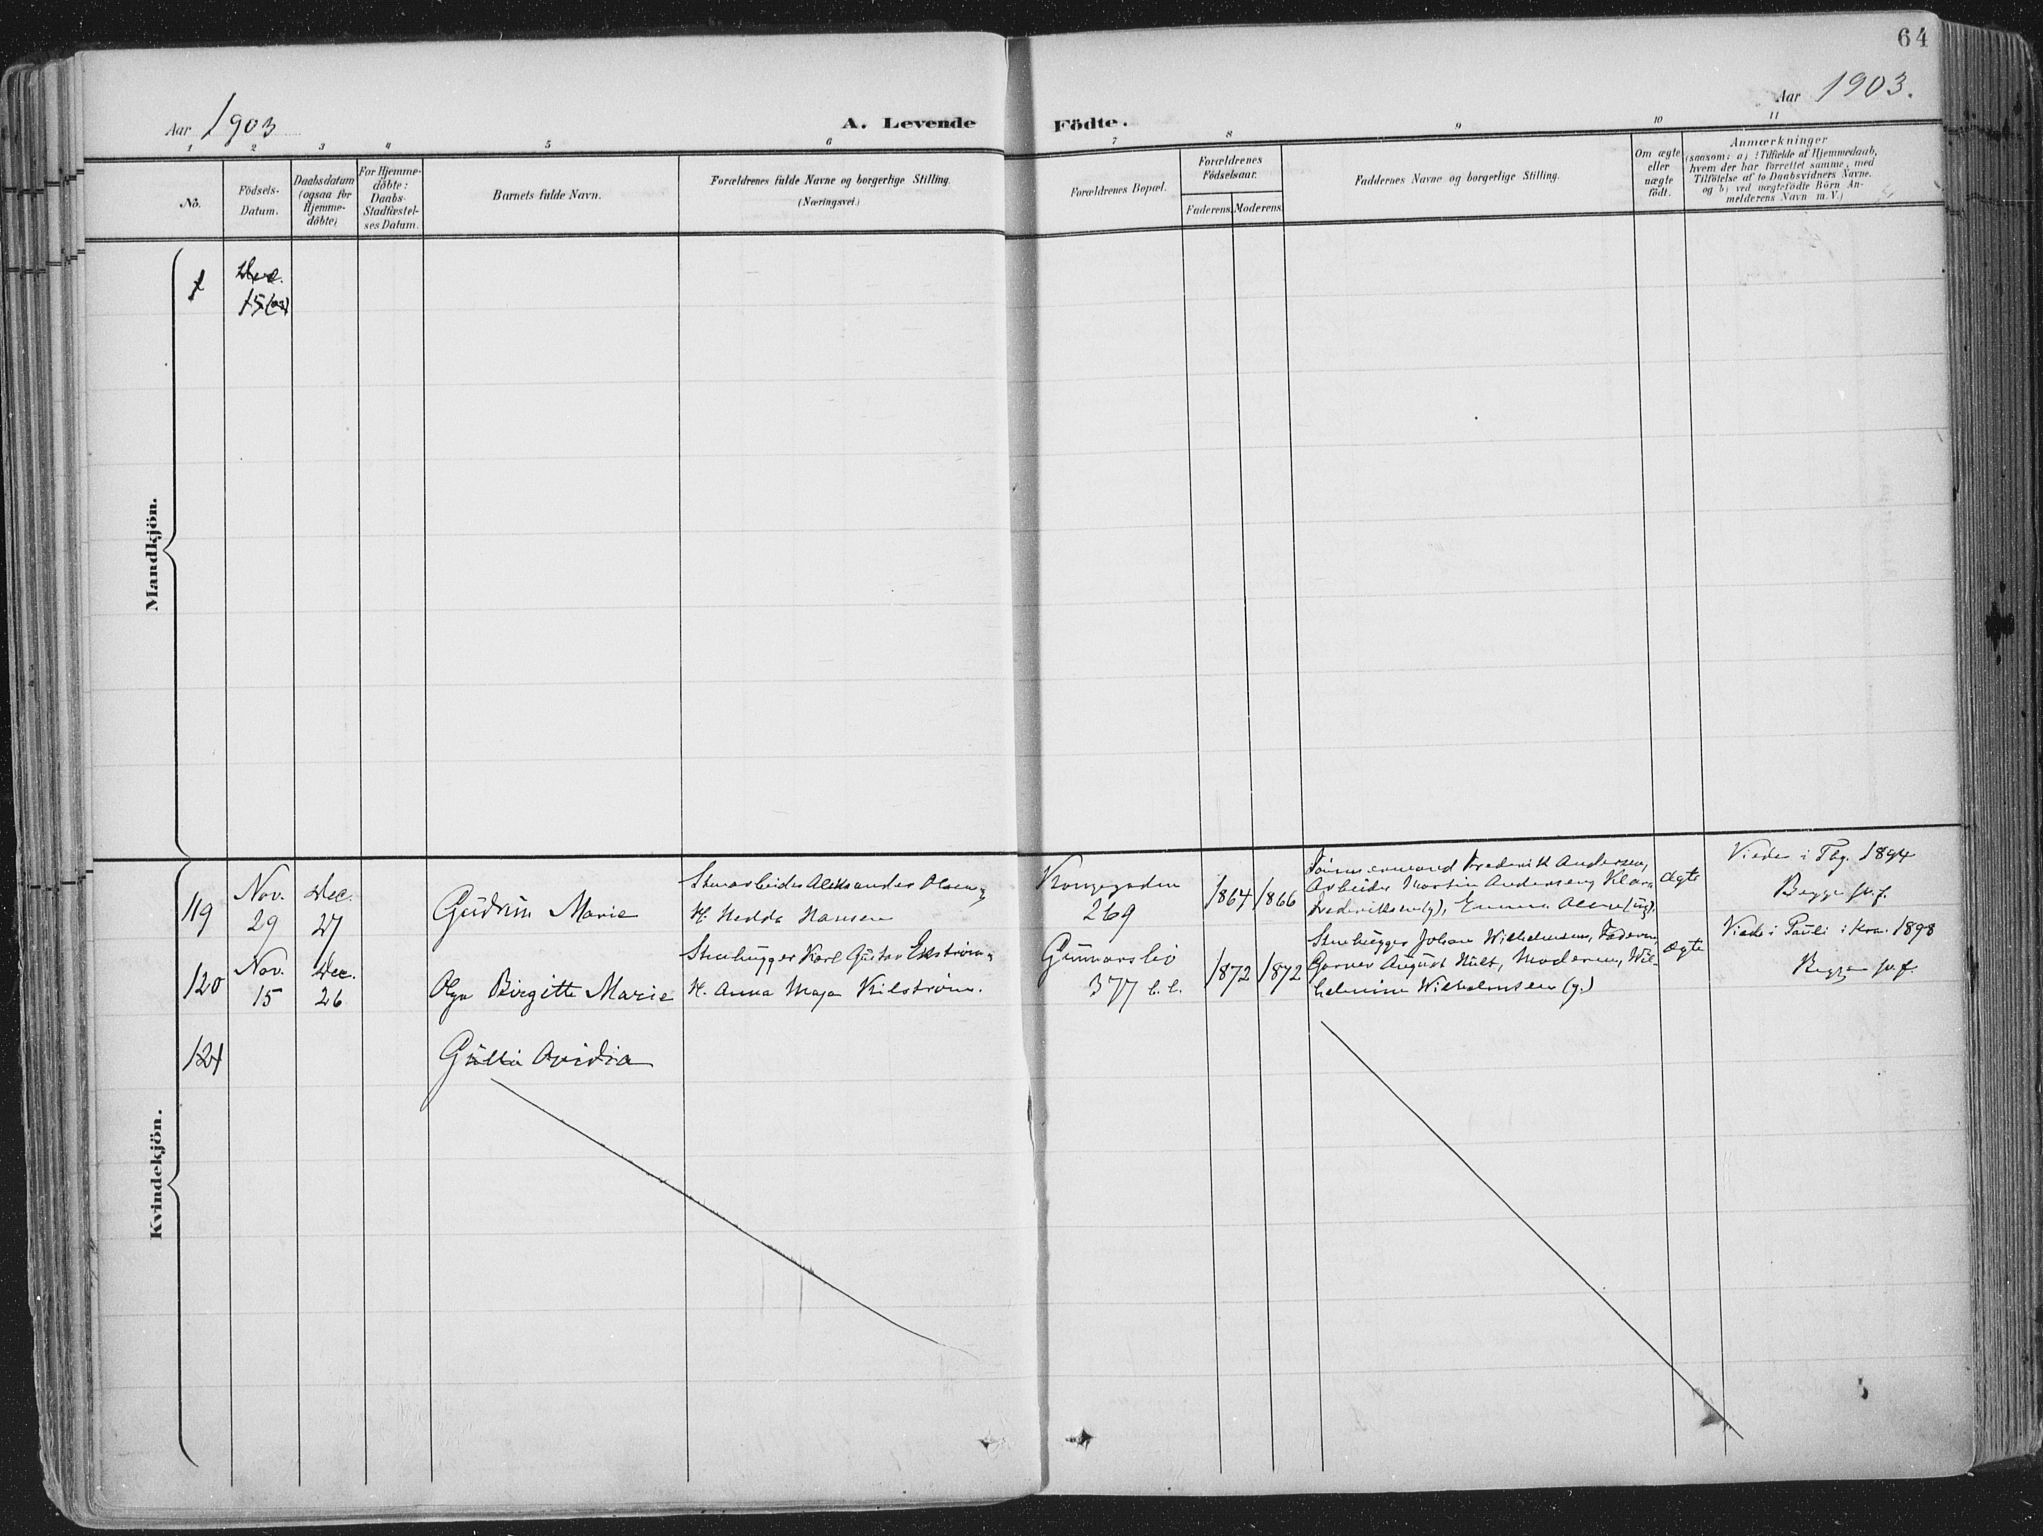 64
Aar 1903
A. Levende Födte.
Aar 1903.
1 2 3 4 5 6 7 8 9 10 11
No.
Födsels-
Datum.
Daabsdatum
(ogsaa for
Hjemme-
döbte)
For Hjemme-
döbte:
Daabs-
Stadfæstel-
ses Datum.
Barnets fulde Navn.
Forældrenes fulde Navne og borgerlige Stilling.
(Næringsvei.)
Forældrenes Bopæl.
Forældrenes
Födselsaar.
Faderens.
Moderens.
Faddernes Navne og borgerlige Stilling.
Om ægte
eller
uægte
födt.
Anmærkninger
(saasom: a) i Tilfælde af Hjemmedaab,
hvem der har forrettet samme, med
Tilföielse af to Daabsvidners Navne.
og b) ved uægtefödte Börn An-
melderens Navn m. V.)
Mandkjön.
Dec.
15
Kvindekjön.
119
Nov.
29
Dec.
27
Gudrun Marie
Stenarbeider Aleksander Olsen
H. Hedda Hansen
Kongegaden
269
1864
1866
Tømmermand Frederik Andersen,
Arbeider Martin Andersen, Klara
Frederiksen (g), Emma
ægte
Viede i Fbg. 1894
Begge
120
Nov.
15
Dec.
26
Olga Birgitte Marie
Stenhugger Karl Gustav Ekstrøm
H. Anna Maja Kilstrøm.
Gunnarsliø
377
1872
1872
Stenhugger Johan Wilhelmsen, Faderen,
Garver August Hult, Moderen, Wil-
helmine Wilhelmsen (g.)
ægte
Viede i Pauli i Kra. 1898
Begge
121
Gulla Ovidia